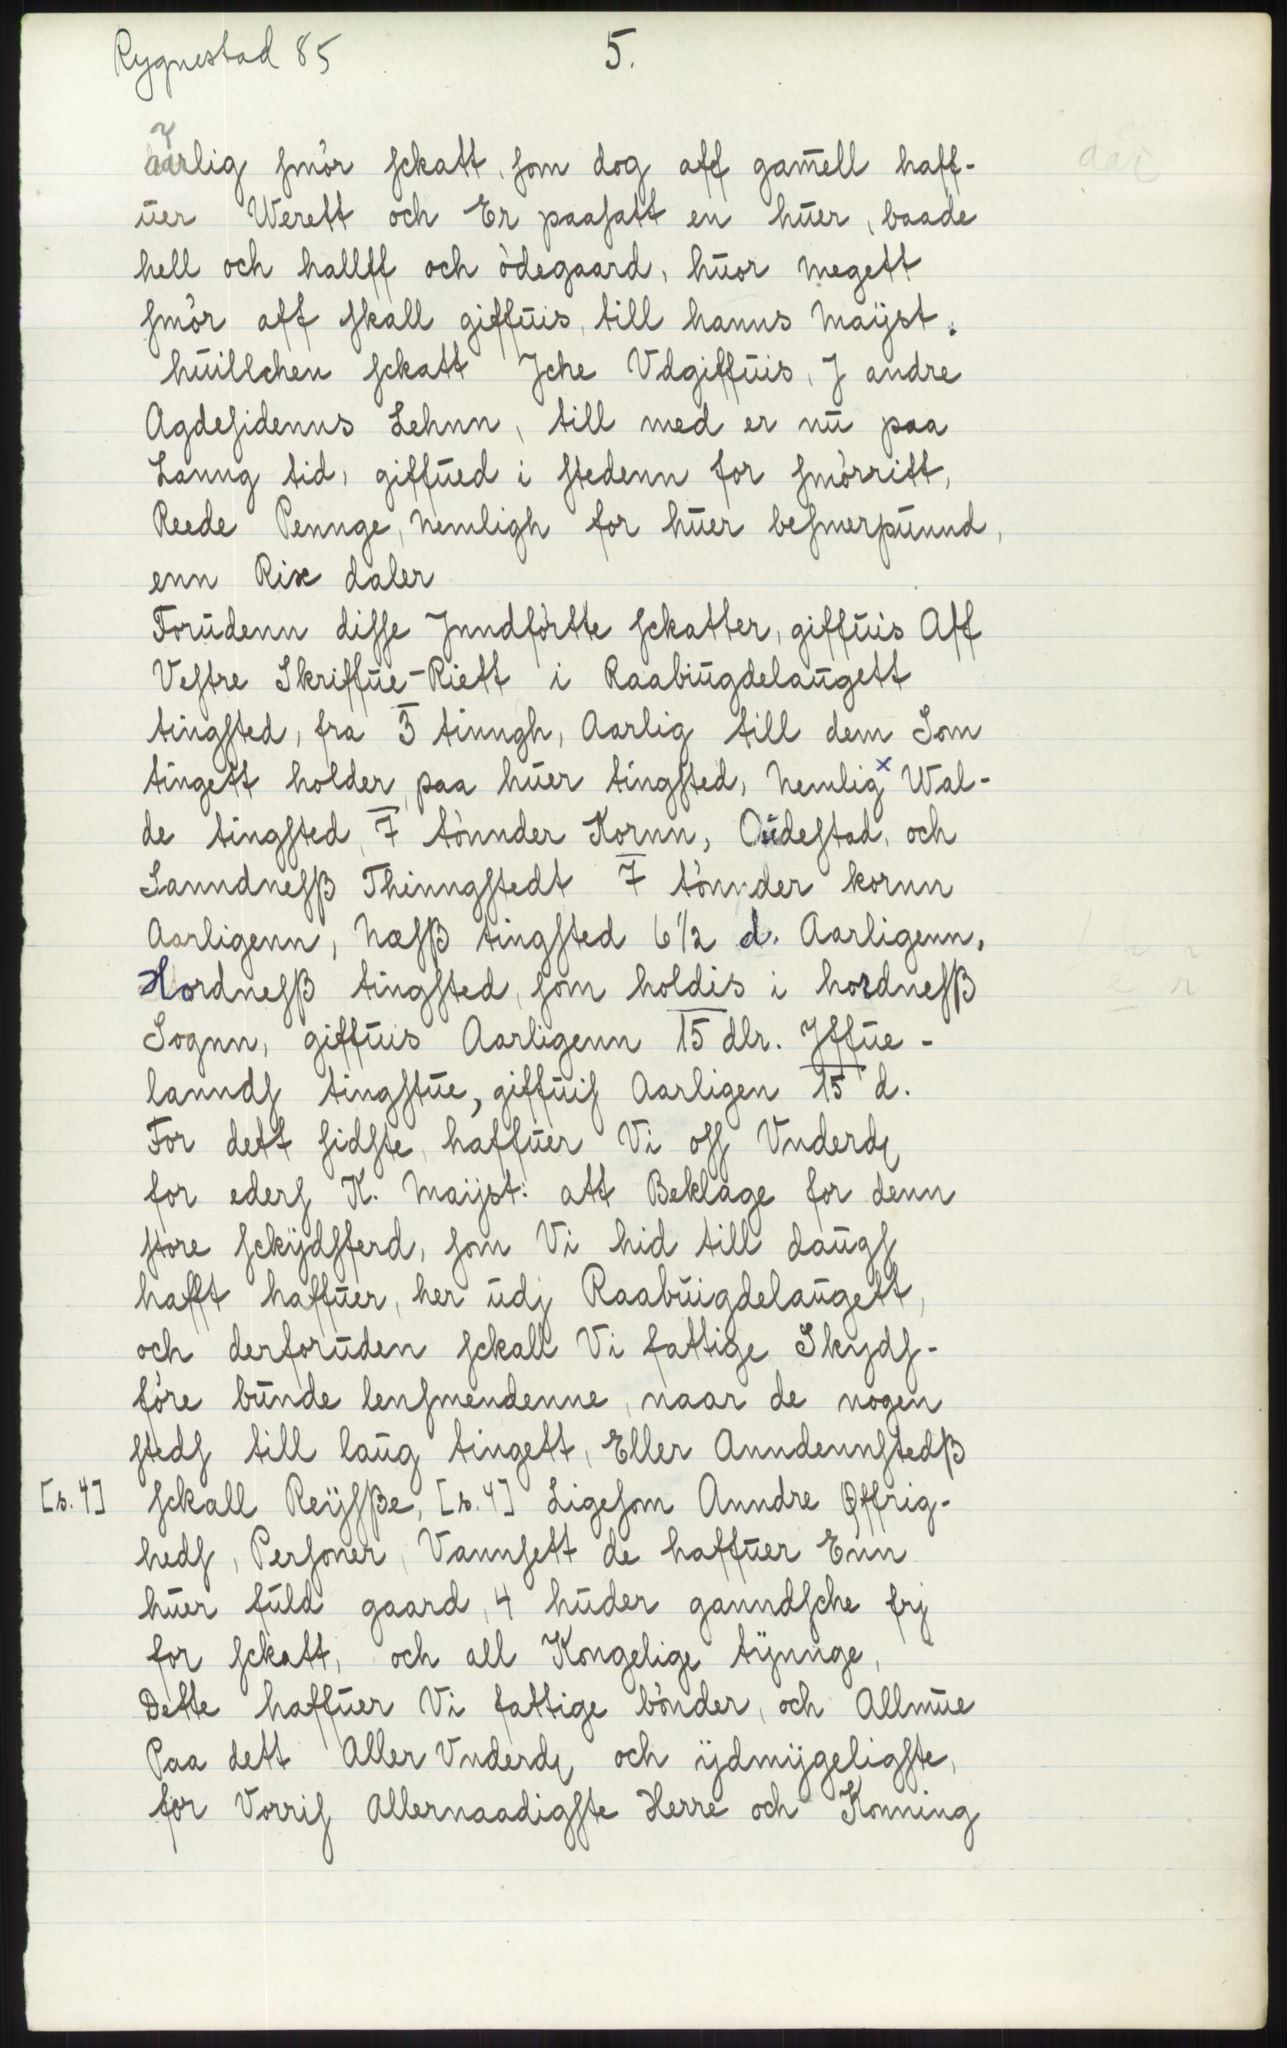 Rygnestad 85
5.
aarlig smör sckatt, som dog aff gam̄ell haff-
ūer Werett och Er paasatt en hūer, baade
hell och hallff och ödegaard, hūor megett
smör aff skall giffūis, till hanns Maÿst.
hūillchen sckatt Jche Vdgiffūis, J andre
Agdesidenns Lehnn, till med er nū paa
Lanng tid, giffūed i stedenn for smörritt,
Reede Pennge, Nemligh for hūer besmerpūnnd,
enn Rix daler
Forūdenn disse Jnndförtte sckatter, giffūis Aff
Vestre Skriffūe-Riett i Raabiūgdelaūgett
tingsted, fra 3 tinngh, Aarlig till dem Som
tingett holder, paa hūer tingsted, Nemlig x Wal-
de tingsted, 7 tönnder Kornn, Oūdestad, och
Sanndnesß Thinngstedt 7 tönnder kornn
Aarligenn, Næsß tingsted 6 1/2 d. Aarligenn,
Hordnesß tingsted, som holdis i hordnesß
Sognn, giffūis Aarligenn 15 dlr. Jffūe-
lannds tingstūe, giffūis Aarligen 15 d.
For dett sidste, haffūer Vi oss Vnderdₑ
for eders K. Maÿst: att Beklage for denn
store sckÿdsferd, som Vi hid till daūgs
hafft haffūer, her ūdj Raabūigdelaūgett,
och derforūden sckall Vi fattige Skyds-
före būnde lensmendenne, naar de nogen
steds till laūg tingett, Eller Anndennstedß
[s. 4] sckall Reÿsße, [s. 4] Ligesom Anndre Øffrig-
heds, Personer, Vannsett de haffūer Enn
hūer fūld gaard, 4 hūder ganndsche frj
for sckatt, och all Kongelige tÿnnge,
Dette haffūer Vi fattige bönder, och Allmūe
Paa dett Aller Vnderdₑ och ÿdmÿgeligste,
for Vorris Allernaadigste Herre och Konning